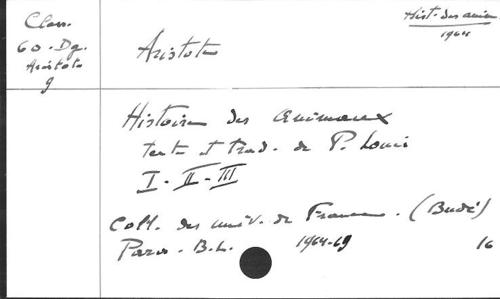 Class.
60-Dg.
Aristote
g
Aristote
Hist. des anim.
1964
Histoire des animaux
texte et trad. de P. Louis
I-II-III
Coll. des univ. de France. (Budé)
Paris. B.L. 1964-69 16